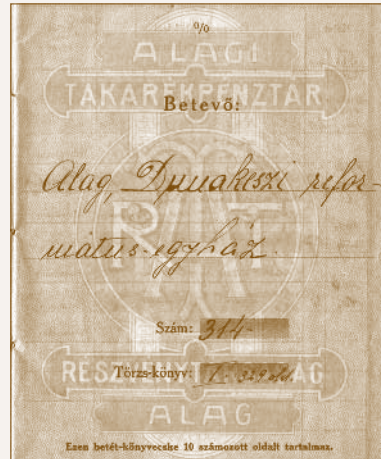 %
ALAGI
TAKARÉKPÉNZTÁR
Betevő:
Alag, Dunakeszi refor-
mátus-egyház.
Szám: 314-
Törzs-könyv: I - 329 old.
ALAG
Ezen betét-könyvecske 10 számozott oldalt tartalmaz.